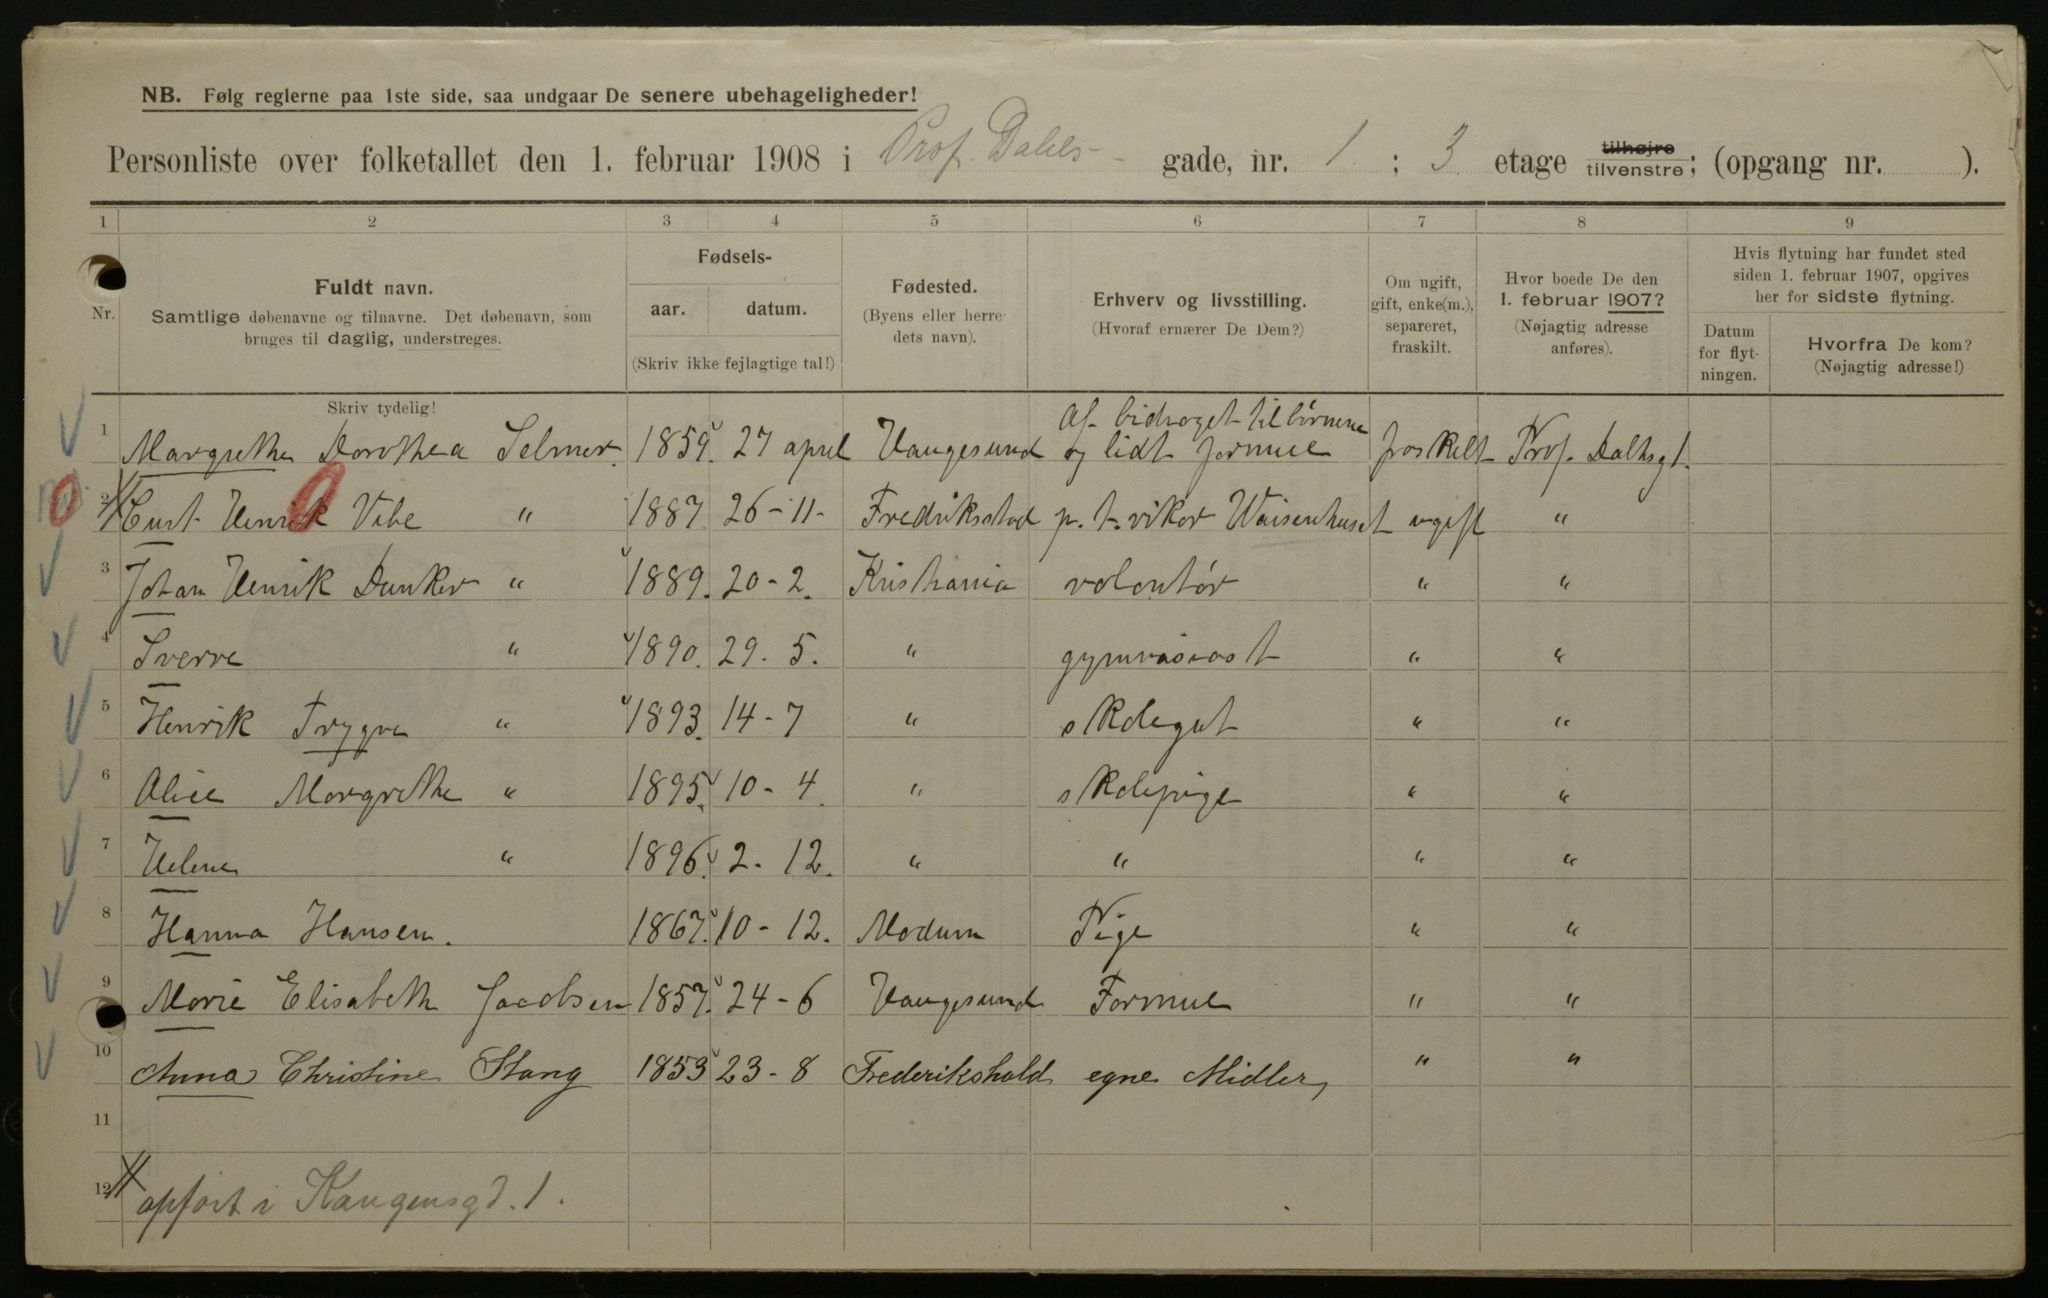 NB. Følg reglerne paa 1ste side, saa undgaar De senere ubehageligheder!
Personliste over folketallet den 1. februar 1908 i Prof. Dahls gade, nr. 1 ; 3 etage tilhøjre tilvenstre; (opgang nr. ).
1 2 3 4 5 6 7 8 9
Nr.
Fuldt navn.
Samtlige døbenavne og tilnavne. Det døbenavn, som
bruges til daglig, understreges.
Skriv tydelig!
Fødsels-
aar. datum.
(Skriv ikke fejlagtige tal!)
Fødested.
(Byens eller herre-
dets navn).
Erhverv og livsstilling.
(Hvoraf ernærer De Dem?)
Om ugift,
gift, enke(m.),
separeret,
fraskilt.
Hvor boede De den
1. februar 1907?
(Nøjagtig adresse
anføres).
Hvis flytning har fundet sted
siden 1. februar 1907, opgives
her for sidste flytning.
Datum
for flyt-
ningen.
Hvorfra De kom?
(Nøjagtig adresse!)
Af bidraget til börnene
1 Margrethe Dorothea Selmer. 1859. 27 april Haugesund og lidt formue fraskilt Prof. Dahlsgt.
2 Curt Henrik Vibe " 1887 26-11- Fredriksstad p. t. vikar Waisenhuset ugift "
3 Johan Henrik Dunker " 1889. 20-2. Kristiania volontör " "
4 Sverre " 1890. 29. 5. " gymnasiast " "
5 Henrik Trygve " 1893. 14-7 " skolegut " "
6 Alice Margrethe " 1895. 10-4. " skolepige " "
7 Helene " 1896. 2. 12. " " " "
8 Hanna Hansen. 1867. 10-12. Modum Pige " "
9 Marie Elisabeth Jacobsen 1857. 24-6 Haugesund Formue " "
10 Anna Christine Stang 1853 23-8 Frederikshald egne Midler, " "
11
12 opført i Kaugensgd. 1.